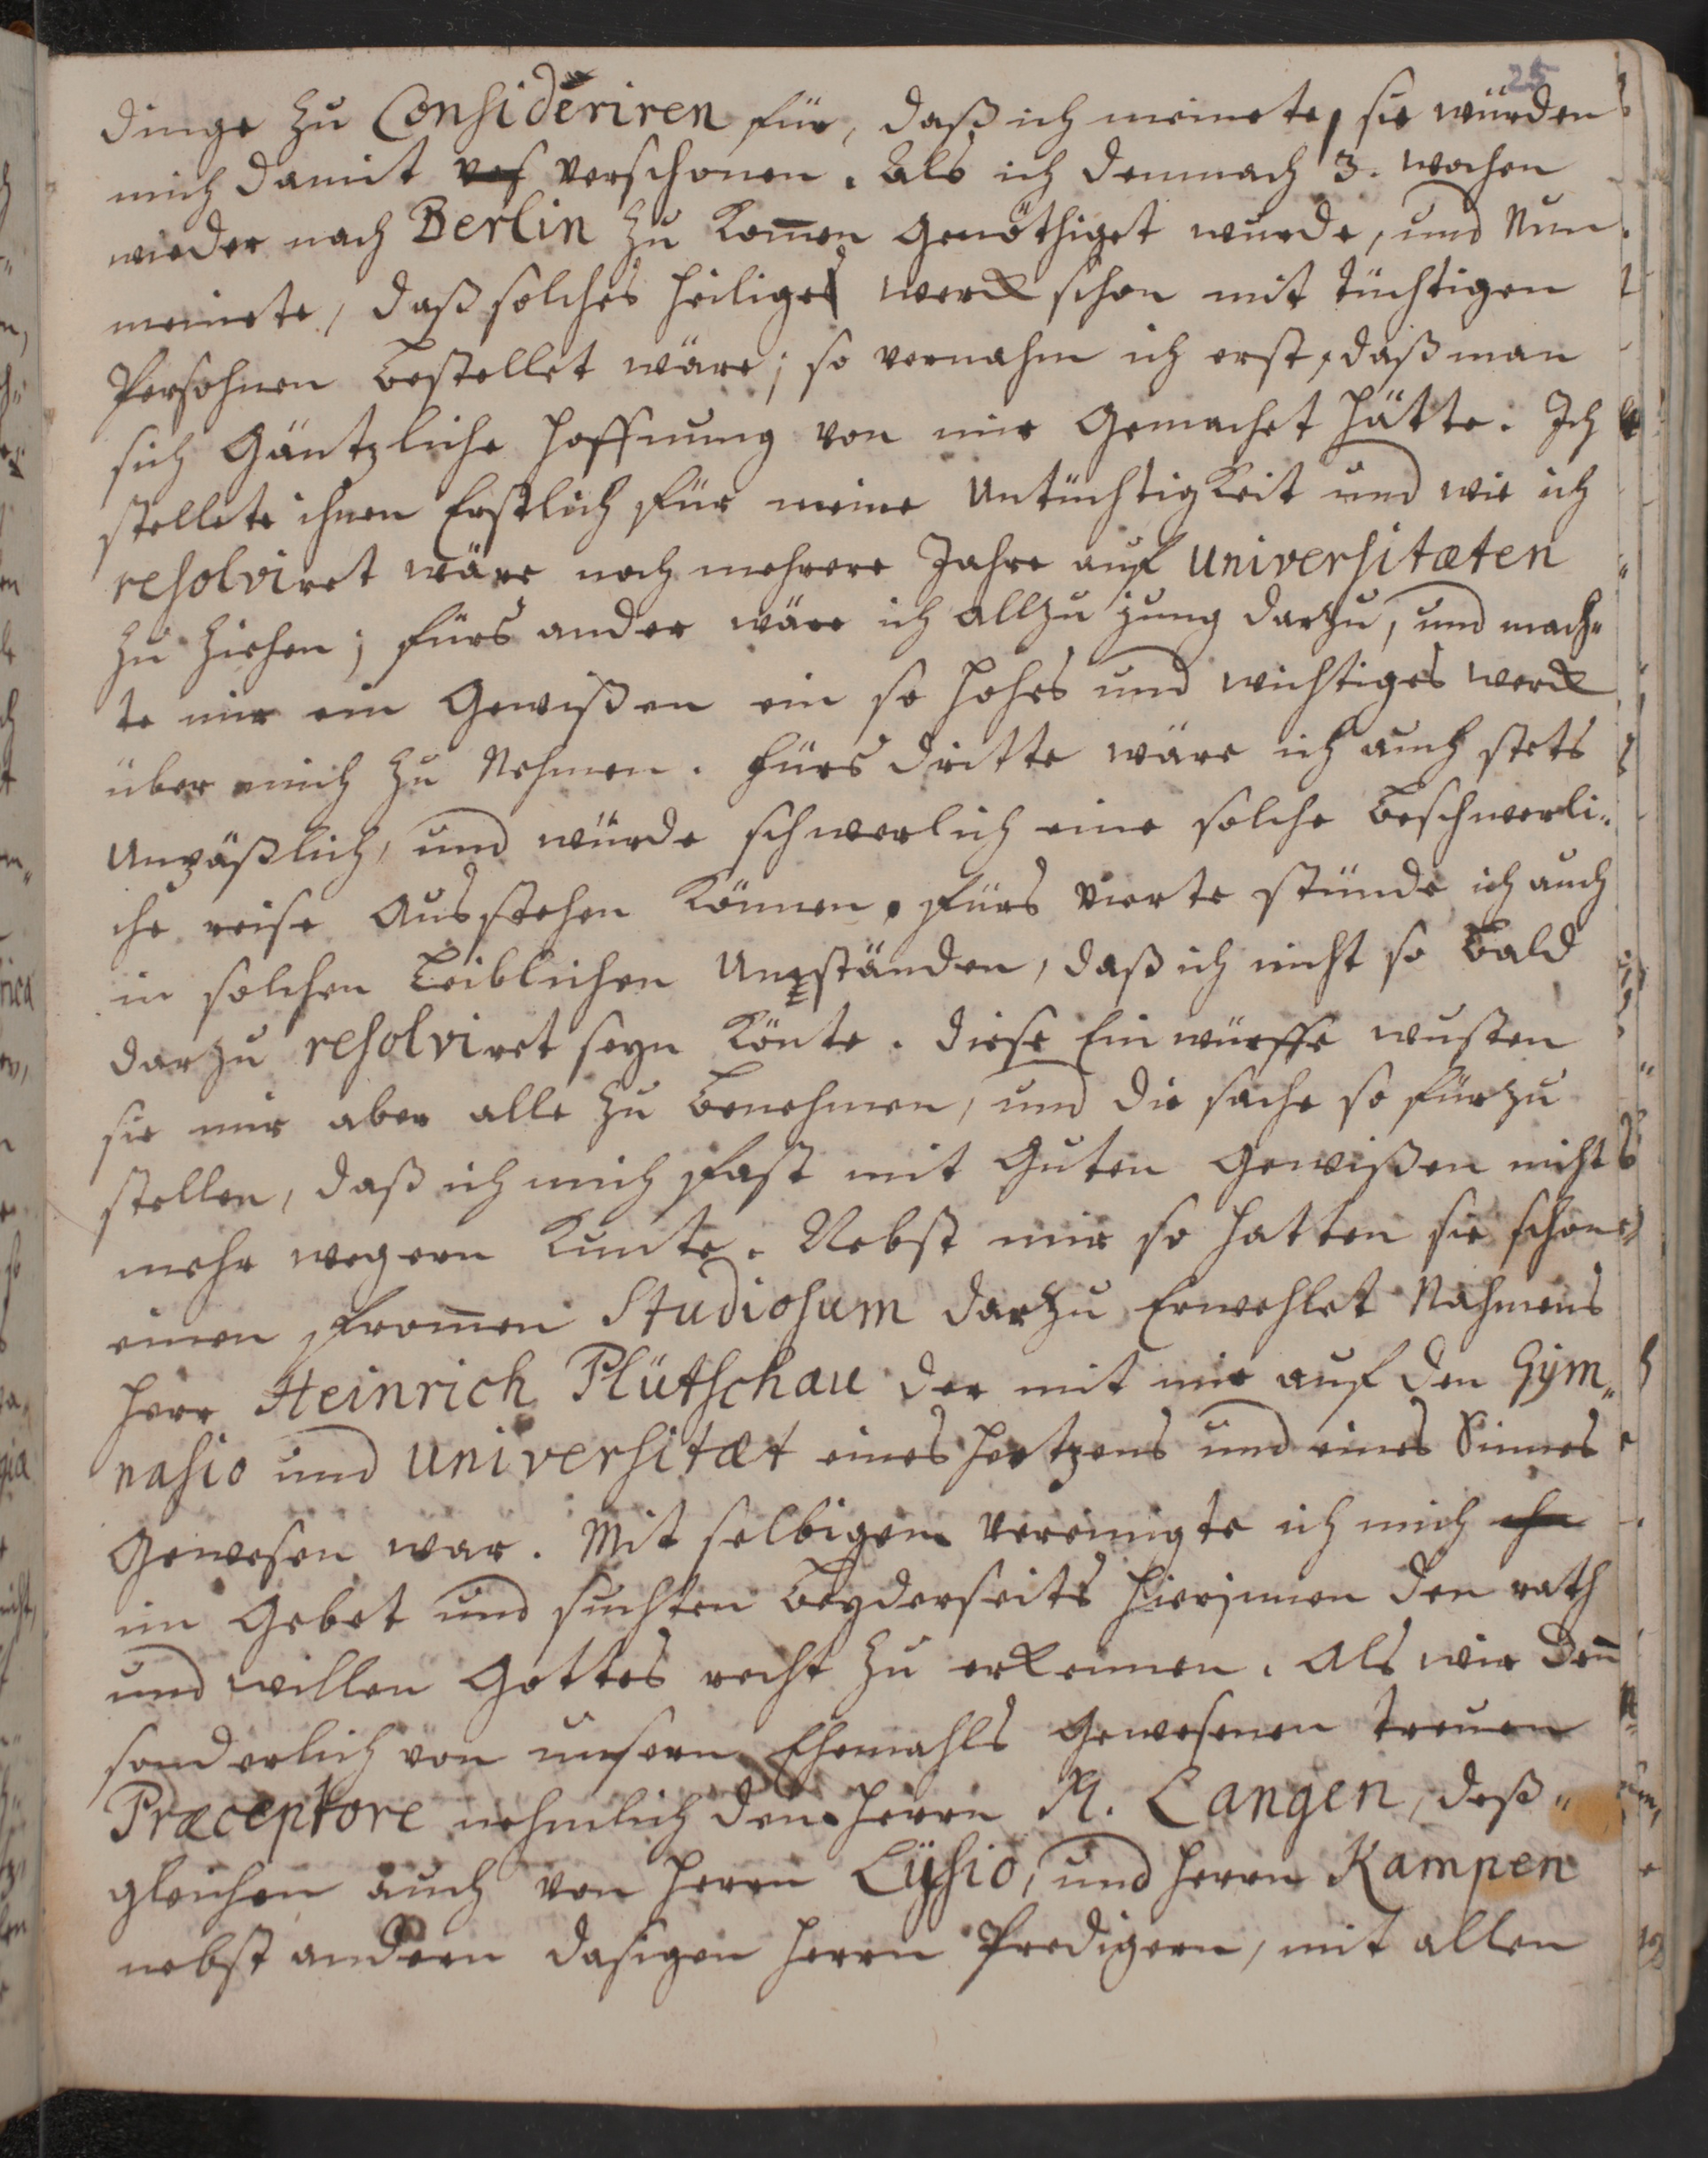 25
dinge zu Consideriren für, daß ich meinete, sie würden
mich damit ver verschonen. Als ich demnach 3. wochen
wieder nach Berlin zu kom̄en genöthiget wurde, und Nun
meinete, daß solches heiliges werck schon mit tüchtigen
Persohnen bestellet wäre; so vernahm ich erst, daß man
sich Gäntzliche hoffnung von mir Gemachet hätte. Ich
stellete ihnen Erstlich für meine Untüchtigkeit und wie ich
resolviret wäre noch mehrere Jahre auf Universitæten
zu ziehen; fürs ander wäre ich allzu jung darzu, und mach„
te mir ein Gewißen ein so hohes und wichtiges werck
über mich zu Nehmen. Fürs dritte wäre ich auch stets
Unpäßlich, und würde schwerlich eine solche beschwerli„
che reise Ausstehen können, fürs vierte stünde ich auch
in solchen Leiblichen Umständen, daß ich nicht so bald
darzu resolviret seyn könte. Diese Einwürffe wusten
sie mir aber alle zu benehmen, und die sache so fürzu
stellen, daß ich mich fast mit Guten Gewißen nicht
mehr wegern kunte. Nebst mir so hatten sie schon
einen from̄en Studiosum darzu Erwehlet Nahmens
Herr Heinrich Plütschau der mit mir auf den Gym„
nasio und Universitæt eines Hertzens und eines Sinnes
Gewesen war. Mit selbigem vereinigte ich mich
im Gebet und suchten beyderseits hierinnen den rath
und willen Gottes recht zu erkennen. Als wir den̄
sonderlich von unsern Ehemahls Gewesenen treuen
Præceptore nehmlich den Herrn M. Langen, deß„
gleichen auch von Herrn Lysio, und Herrn Kampen
nebst andern dasigen Herrn Predigern, mit allen